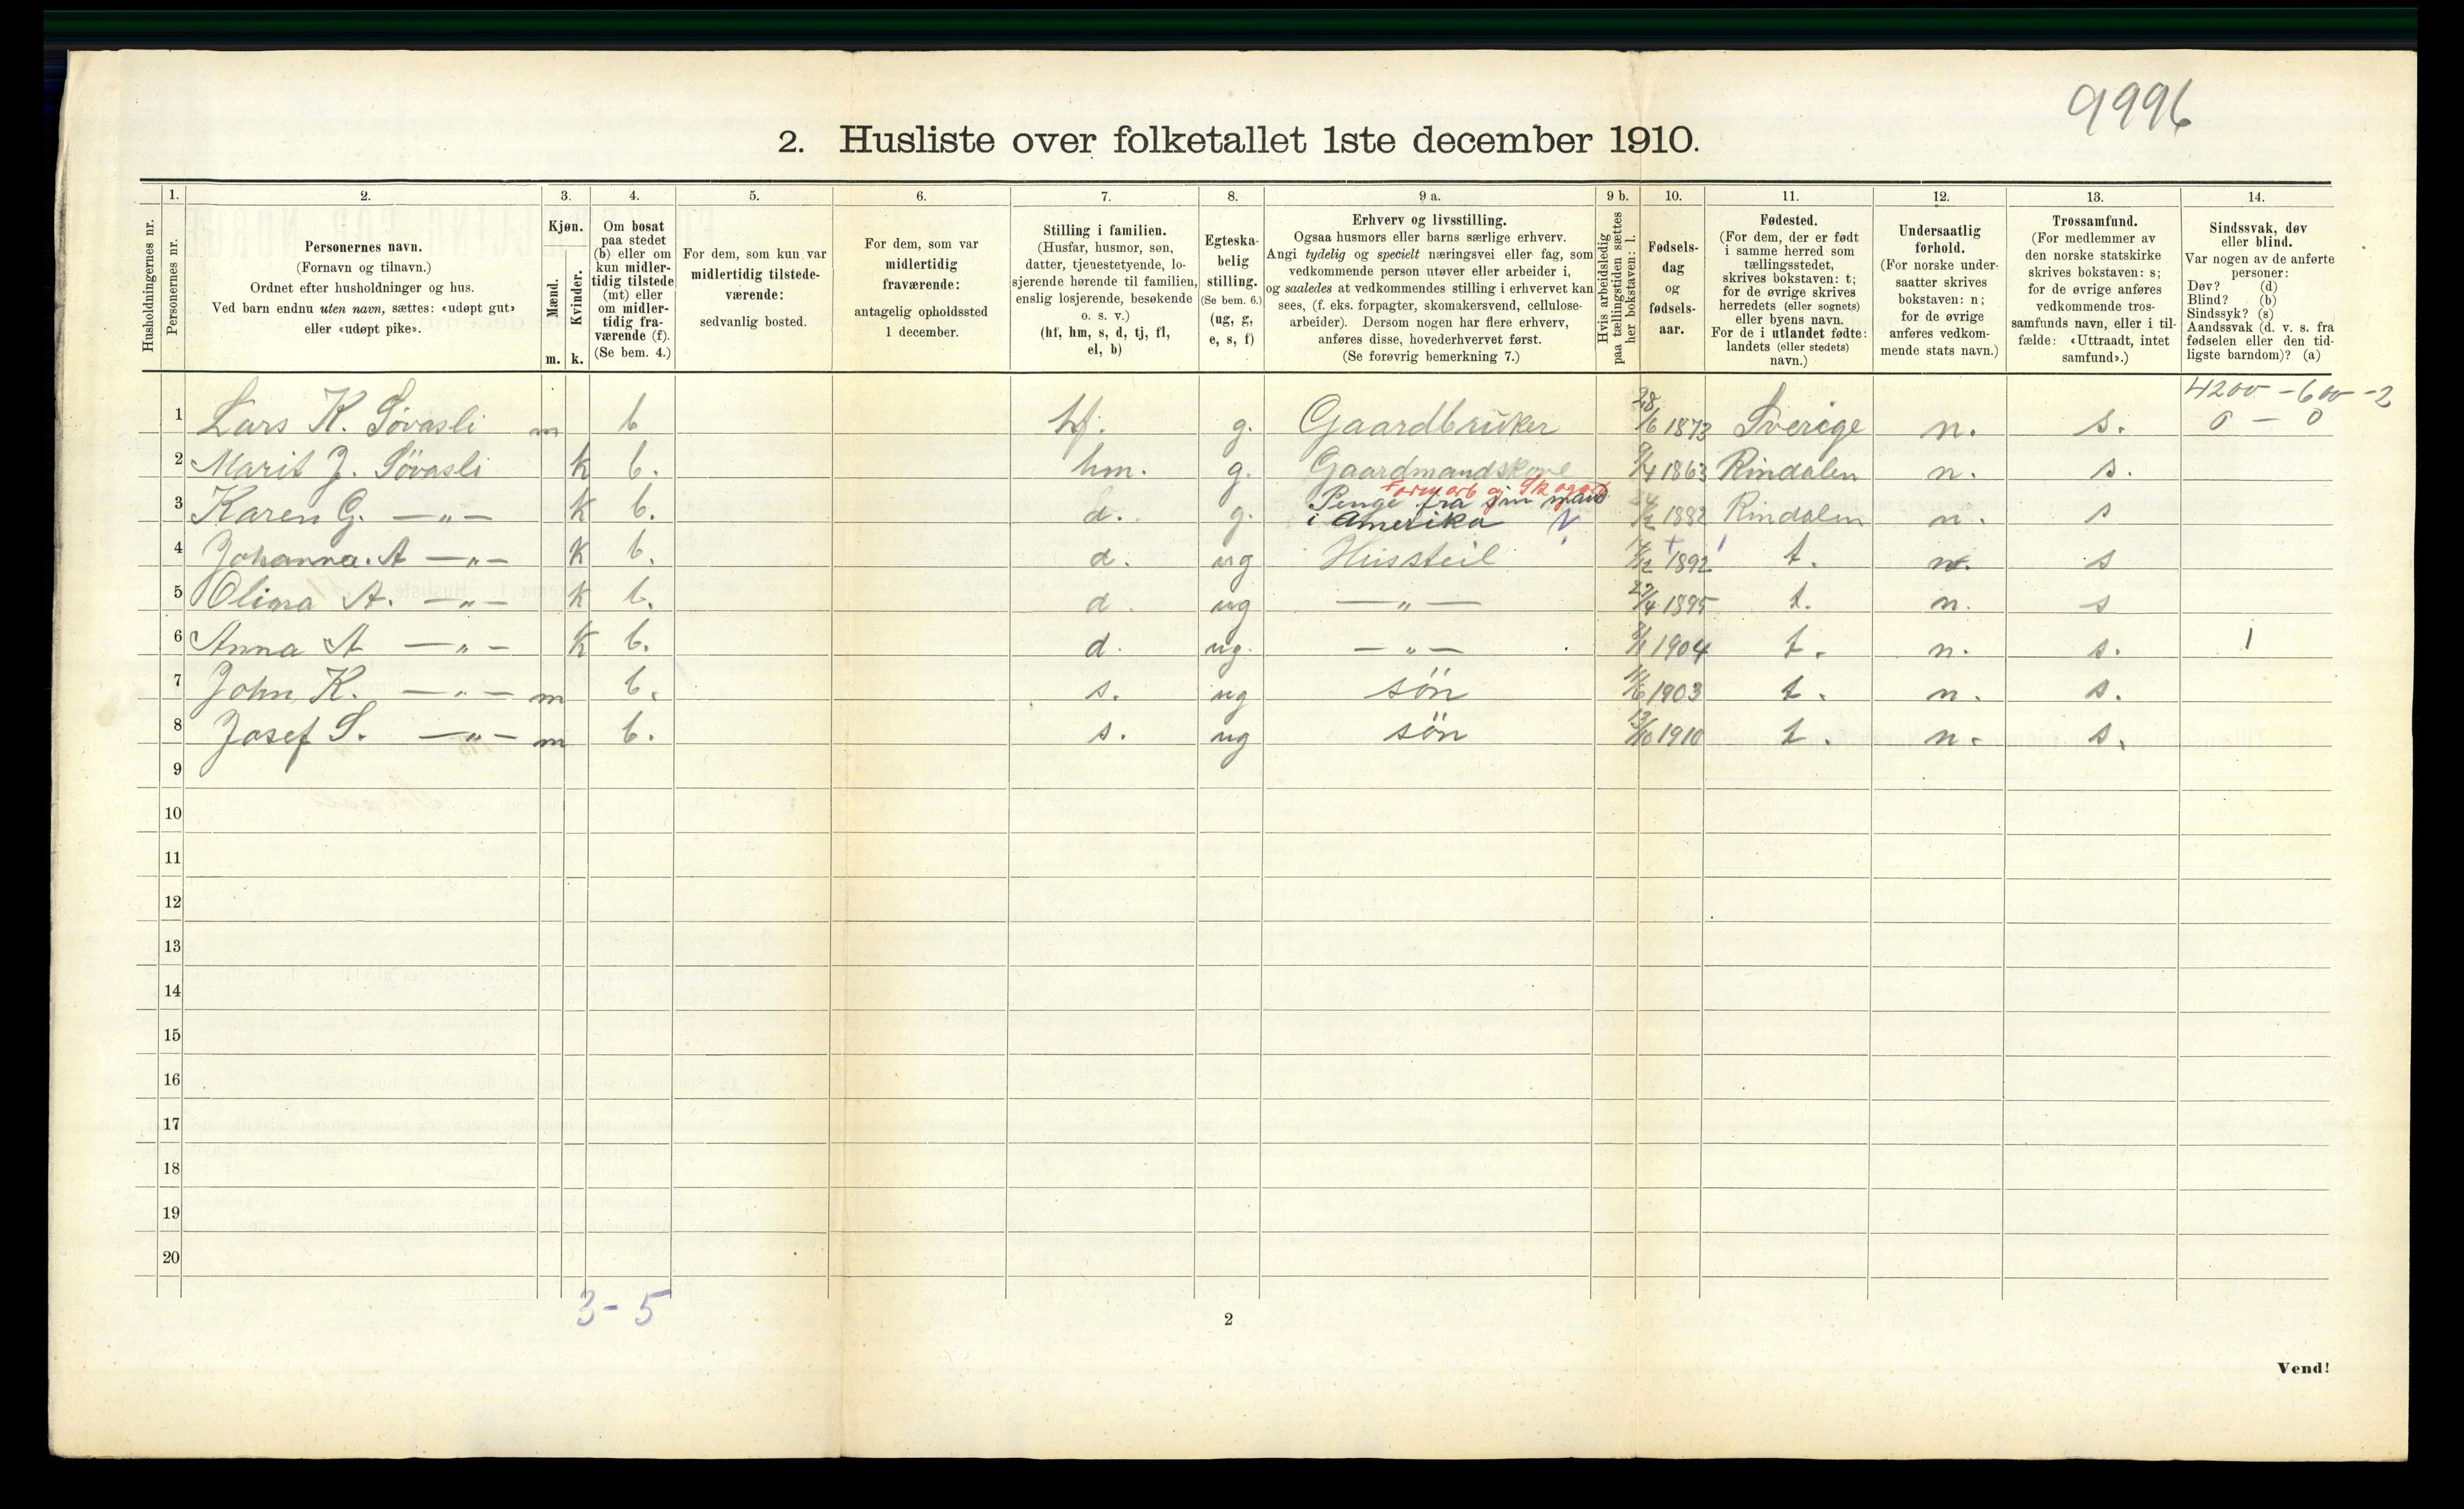 9996
2. Husliste over folketallet 1ste december 1910.
1. 2. 3. 4. 5. 6. 7. 8. 9 a. 9 b. 10. 11. 12. 13. 14.
Husholdningernes nr.
Personernes nr.
Personernes navn.
(Fornavn og tilnavn.)
Ordnet efter husholdninger og hus.
Ved barn endnu uten navn, sættes: «udøpt gut»
eller «udøpt pike».
Kjøn.
Mænd.
Kvinder.
m. k.
Om bosat
paa stedet
(b) eller om
kun midler-
tidig tilstede
(mt) eller
om midler-
tidig fra-
værende (f).
(Se bem. 4.)
For dem, som kun var
midlertidig tilstede-
værende:
sedvanlig bosted.
For dem, som var
midlertidig
fraværende:
antagelig opholdssted
1 december.
Stilling i familien.
(Husfar, husmor, søn,
datter, tjenestetyende, lo-
sjerende hørende til familien,
enslig losjerende, besøkende
o. s. v.)
(hf, hm, s, d, tj, fl,
el, b)
Egteska-
belig
stilling.
(Se bem. 6.)
(ug, g,
e, s, f)
Erhverv og livsstilling.
Ogsaa husmors eller barns særlige erhverv.
Angi tydelig og specielt næringsvei eller fag, som
vedkommende person utøver eller arbeider i,
og saaledes at vedkommendes stilling i erhvervet kan
sees, (f. eks. forpagter, skomakersvend, cellulose-
arbeider). Dersom nogen har flere erhverv,
anføres disse, hovederhvervet først.
(Se forøvrig bemerkning 7.)
Hvis arbeidsledig
paa tællingstiden sættes
her bokstaven: l.
Fødsels-
dag
og
fødsels-
aar.
Fødested.
(For dem, der er født
i samme herred som
tællingsstedet,
skrives bokstaven: t;
for de øvrige skrives
herredets (eller sognets)
eller byens navn.
For de i utlandet fødte:
landets (eller stedets)
navn.)
Undersaatlig
forhold.
(For norske under-
saatter skrives
bokstaven: n;
for de øvrige
anføres vedkom-
mende stats navn.)
Trossamfund.
(For medlemmer av
den norske statskirke
skrives bokstaven: s;
for de øvrige anføres
vedkommende tros-
samfunds navn, eller i til-
fælde: «Uttraadt, intet
samfund».)
Sindssvak, døv
eller blind.
Var nogen av de anførte
personer:
Døv? (d)
Blind? (b)
Sindssyk? (s)
Aandssvak (d. v. s. fra
fødselen eller den tid-
ligste barndom)? (a)
4200 - 600 - 2
1 Lars K. Søvasli m b hf. g. Gaardbruker 28/6 1873 Sverige n. s. 0 - 0
2 Marit J. Søvasli k b. hm. g. Gaardmandskone 9/4 1863 Rindalen n. s.
3 Karen G. —„— k b. d. g. Penge fra sin mand 1882 Rindalen n. s
i Amerika
4 Johanna. A —„— k b. d. ug Hussteil 1892 t. n. s
5 Olina A. —„— k b. d. ug —„— 27/4 1895 t. n. s
6 Anna A —„— k b. d. ug. —„— 1904 t. n. s. 1
7 John K. —„— m b. s. ug søn 11/6 1903 t. n. s.
8 Josef S. —„— m b. s. ug søn 13/10 1910 t. n. s.
9
10
11
12
13
14
15
16
17
18
19
20
3 - 5
2
Vend!